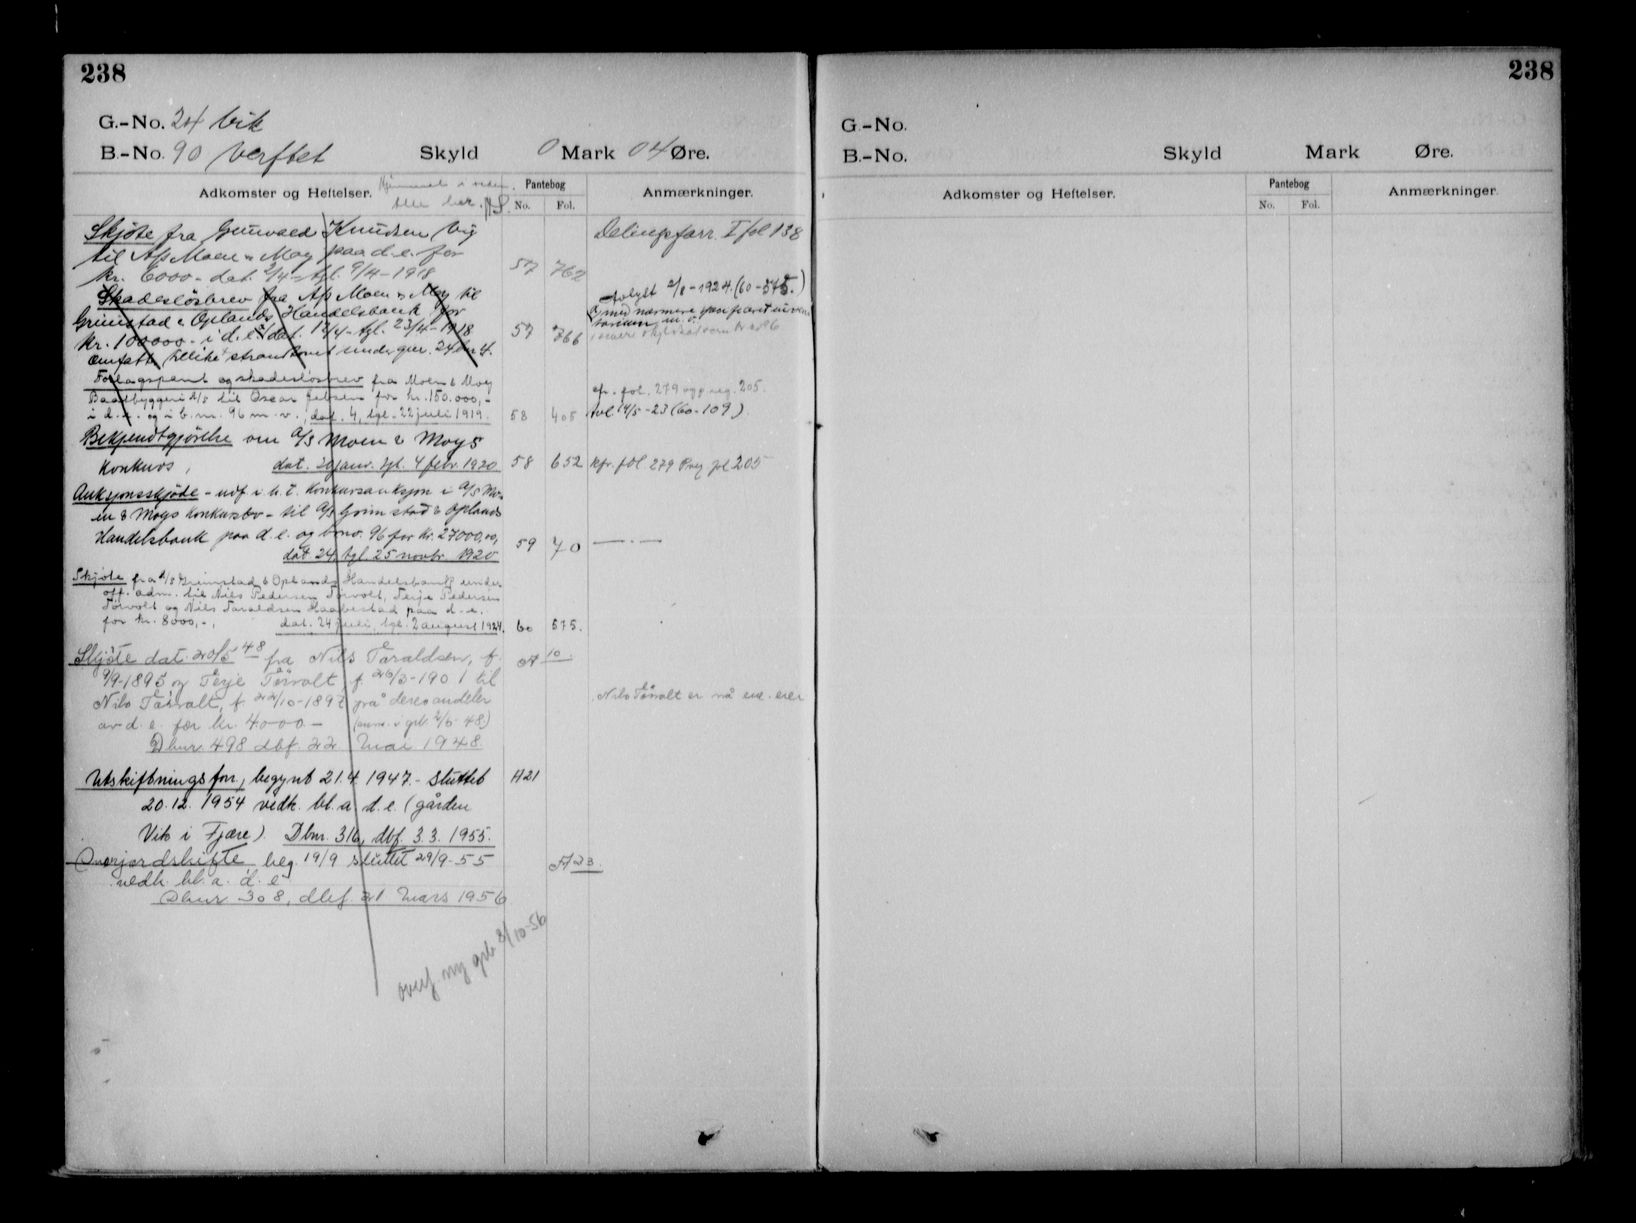 238
G.-No. 24 Vik
B.-No. 90 Verftet
Skyld 0 Mark 04 Øre.
Adkomster og Heftelser.
Pantebog
No. Fol.
Anmærkninger.
Skjøte fra Gunvald Knudsen Vig
til A/s Moen & Moy paa d. e. for
kr. 6000.- dat. 2/4 - tgl. 9/4-1918 57 762
Delingsforr. I fol 138
Skadesløsbrev fra A/s Moen & Moy til
Grimstad & Oplands Handelsbank for
kr. 100000.- i d. e. dat. 12/4 - tgl. 23/4-1918 57 766
Omfatter tillike strandtomt under gnr. 24 bnr 4.
avlyst 2/8-1924. (60-575.)
Forlagspant og skadesløsbrev fra Moen & Moy
Baatbyggeri A/S til Oscar Jebsen for kr. 150.000,-
i d. e. og i b. nr. 96 m. v., dat. 4, tgl. 22 juli 1919. 58 405
cfr. fol. 279 og p.reg. 205.
avl. 14/5-23 (60-109).
Bekjendtgjørelse om A/S Moen & Moys
konkurs, dat. 30 janr. tgl. 4 febr. 1920 58 652
kfr. fol. 279 Preg fol 205
Auksjonsskjøde - udf i h. t. konkursauksjon i A/S Mo-
en & Moys konkursbo - til A/S Grimstad & Oplands
Handelsbank paa d. e. og bnr. 96 for kr. 27000,00,
dat 24, tgl. 25 novbr. 1920 59 70
Skjøte fra A/S Grimstad & Oplands Handelsbank under
off. adm. til Nils Pedersen Törvolt, Terje Pedersen
Törvolt og Nils Taraldsen Haabestad paa d. e.
for kr. 8000,-, dat. 24 juli, tgl. 2 august 1924. 60 575.
Skjöte dat. 20/5 48 fra Nils Taraldsen, f. A 10
9/9-1895 og Terje Törvolt f. 26/3-1901 til
Nils Törvolt, f. 22/10-1897 på deres andeler
av d. e. for kr. 4000.-
Dbnr. 498 dbf. 22 Mai 1948.
Nils Törvolt er nå ene eier
Utskiftningsforr, begynt 21.4 1947.- sluttet A21
20.12. 1954 vedk. bl. a. d. e. (gården
Vik i Fjære). Dbnr. 316, dbf. 3.3. 1955.
beg 19/9 sluttet 29/9-55 A 23.
vedk. bl. a. d. e
Dbnr 308, dbf. 21 Mars 1956
overf ny grb 8/10-56
238
G.-No.
B.-No.
Skyld Mark Øre.
Adkomster og Heftelser.
Pantebog
No. Fol.
Anmærkninger.